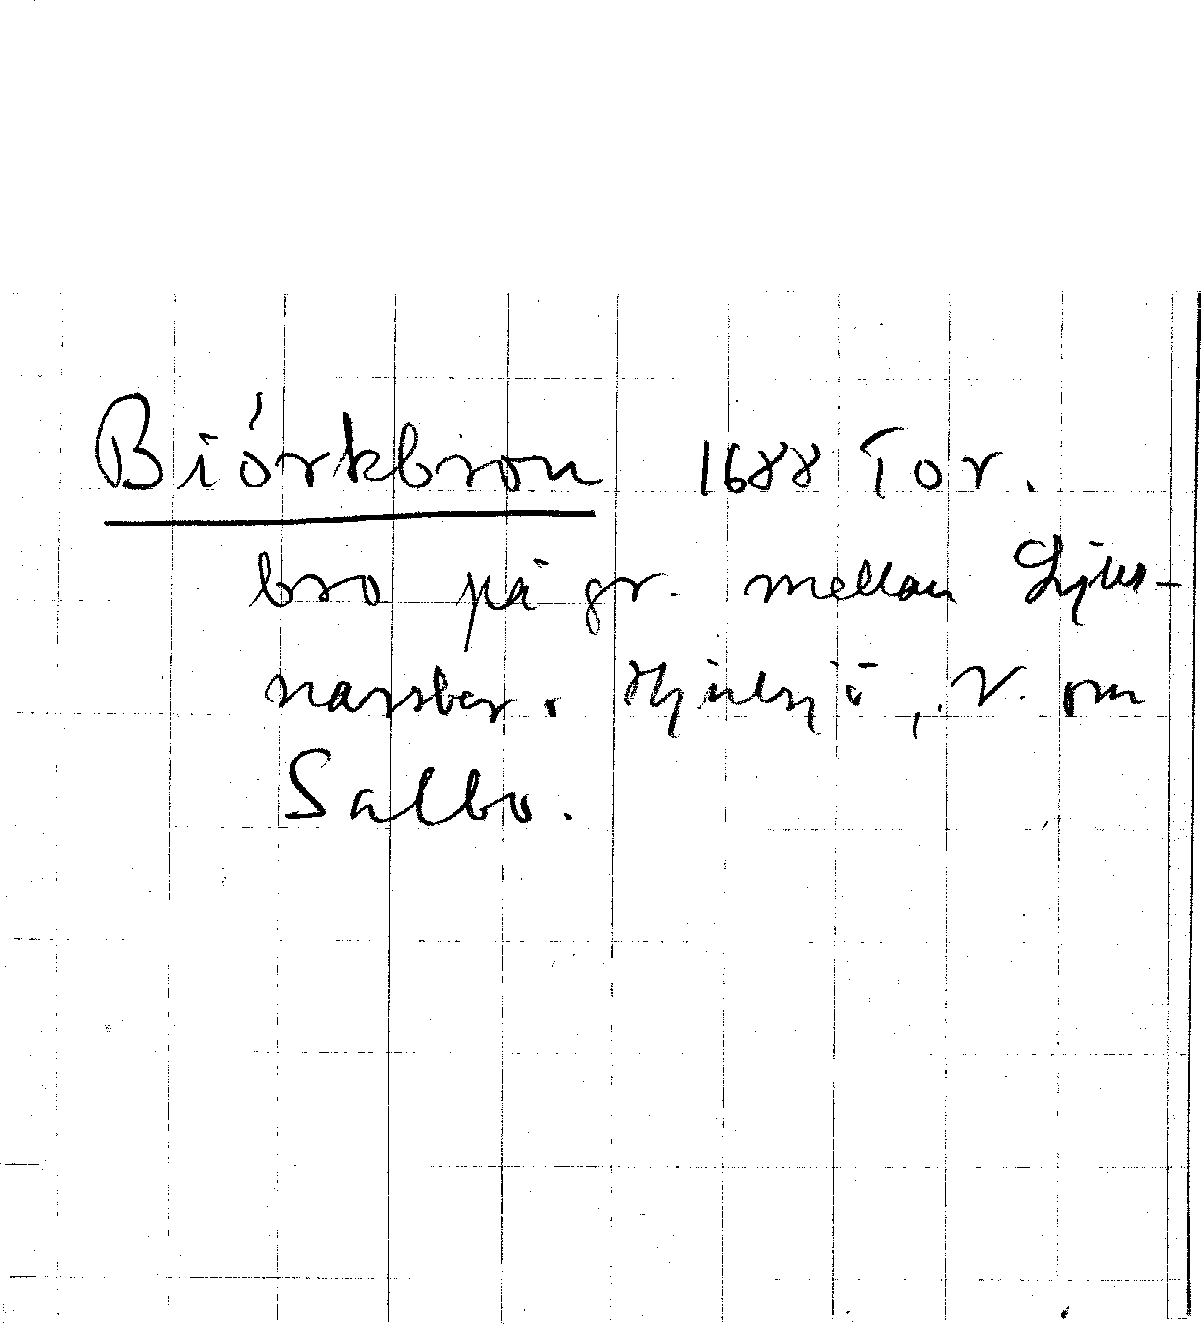 Biórkbron 1688 Tor.
bro på gr. mellan Ljus-
narsber. o Hjulsjö, V. om
Salbo.